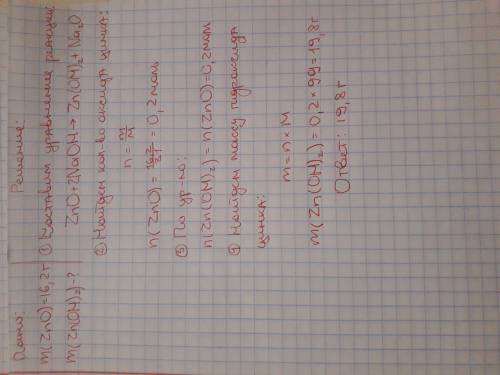 Дано:
m(ZnO)=16,2г
m(Zn(OH)₂)-?
Решение:
① Составим уравнение реакции:
ZnO+2NaOH→Zn(OH)₂+Na₂O
② Найдем кол-во оксида цинка:
n=m/M
n(ZnO)=16,2/81=0,2моль
③ По ур-ю:
n(Zn(OH)₂)=n(ZnO)=0,2моль
④ Найдем массу гидроксида
цинка:
m=n×M
m(Zn(OH)₂)=0,2×99=19,8г
Ответ: 19,8г